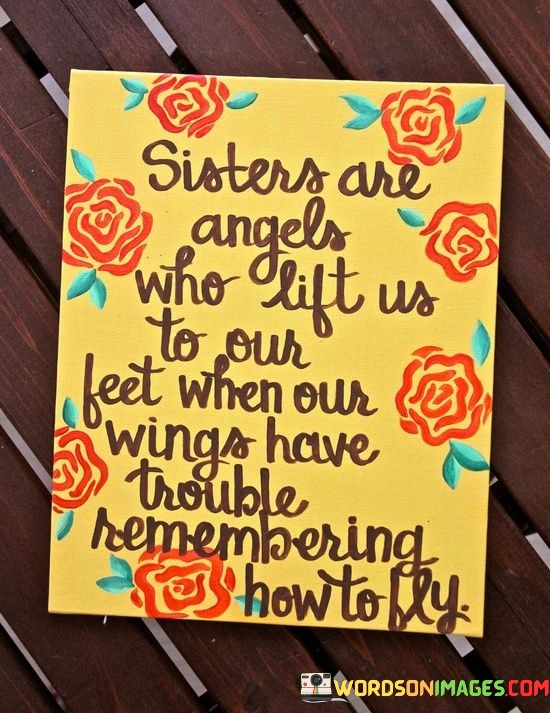 Sisters are
angels
who lift us
to our
feet when our
wings have
trouble
remembering
how to fly.
WORDSONIMAGES.COM